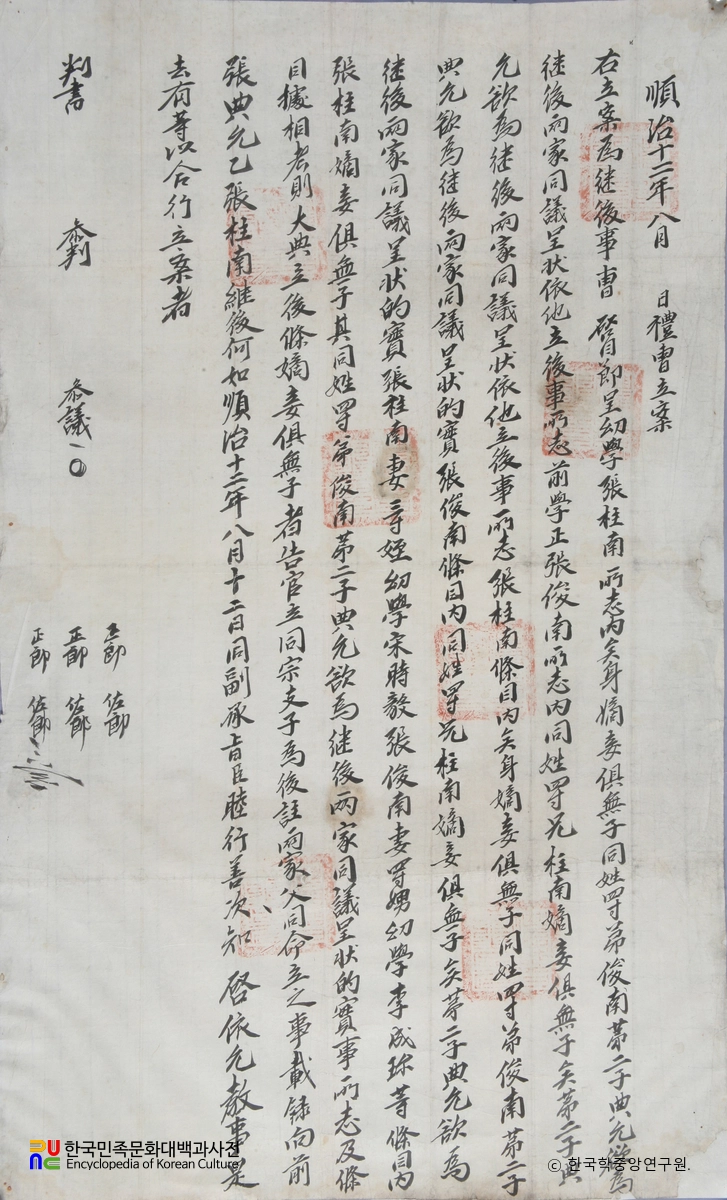 順治十二年八月　日禮曹立案
右立案爲継後事曺 啓目節呈幼學張柱南所志內矣身嫡妾俱無子同姓四寸弟俊南第二子典允欲爲
継後兩家同議呈狀依他立後事所志前學正張俊南所志內同姓四寸兄柱南嫡妾俱無子矣第二子典
允欲爲継後兩家同議呈狀依他立後事所志張柱南條目內矣身嫡妾俱無子同姓四寸弟俊南第二子
典允欲爲継後兩家同議呈狀的實張俊南條目內同姓四寸兄柱南嫡妾俱無子矣第二子典允欲爲
継後兩家同議呈狀的實張柱南妻三寸姪幼學宋時毅張俊南妻四寸娚幼學李成珎等條目內
張柱南嫡妾俱無子其同姓四寸弟俊南第二子典允欲爲継後兩家同議呈狀的實事所志及條
目據相考則大典立後條嫡妾俱無子者告官立同宗支子爲後註兩家父同命立之事載錄向前
張典允乙張柱南継後何如順治十二年八月十二日同副承旨臣睦行善次知 啓依允敎事是
去有等以合行立案者
判書　參判　參議
正郞 佐郞
正郞 佐郞
正郞 佐郞
한국민족문화대백과사전
Encyclopedia of Korean Culture
ⓒ 한국학중앙연구원.